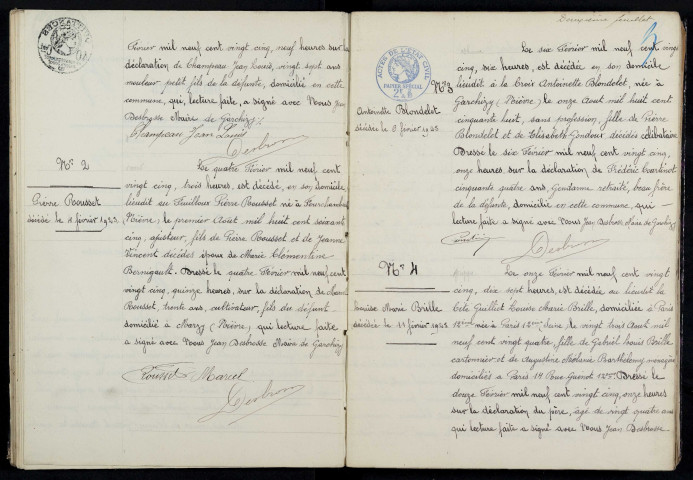 Février mil neuf cent vingt cinq, neuf heures sur la
déclaration de Champeau Jean Louis, vingt sept ans
meuleur petit fils de la défunte, domicilié en cette
commune, qui, lecture faite, a signé avec Nous Jean
Desbrosse Maire de Garchizy.
Champeau Jean Louis
Desbrosse
N° 2
Pierre Rousset
décédé le 4 février 1925.
Le quatre Février mil neuf cent
vingt cinq, trois heures, est décédé, en son domicile
lieudit au Pierre Rousset né à
Nièvre, le premier Aout mil huit cent soixante
cinq, ajusteur, fils de Pierre Rousset et de Jeanne
Vincent décédés époux de Marie Clémentine
Bernigault. Dressé le quatre Février mil neuf cent
vingt cinq, quinze heures, sur la déclaration de Marcel
Rousset, trente ans, cultivateur, fils du défunt
domicilié à Marzy (Nièvre), qui lecture faite
a signé avec Nous Jean Desbrosse Maire de Garchizy
Rousset Marcel
Desbrosse
Deuxième feuillet
ACTES DE L'ETAT CIVIL
PAPIER SPECIAL
N° 3
Antoinette Blondelet
décédée le 6 février 1925
Le six Février mil neuf cent vingt
cinq, six heures, est décédée en son domicile
lieudit à la Croix Antoinette Blondelet, née à
Garchizy (Nièvre) le onze Aout mil huit cent
cinquante huit, sans profession, fille de Pierre
Blondelet et de Elisabeth décédés célibataire
Dressé le six Février mil neuf cent vingt cinq,
onze heures sur la déclaration de Frédéric
cinquante quatre ans, Gendarme retraité, beau frère
de la défunte, domicilié en cette commune, qui
lecture faite a signé avec Nous Jean Desbrosse Maire de Garchizy
Desbrosse
N° 4
Louise Marie Brille
décédée le 11 février 1925
Le onze Février mil neuf cent vingt
cinq, dix sept heures, est décédée au lieudit la
Cité Louise Marie Brille, domiciliée à Paris
12ème née à Paris 12ème le vingt trois Aout mil
neuf cent vingt quatre, fille de Gabriel Louis Brille
cartonnier et de Augustine Barthélemy ménagère
domiciliés à Paris 14 Rue 12ème. Dressé le
douze Février mil neuf cent vingt cinq, onze heures
sur la déclaration du père, âgé de vingt quatre ans
qui lecture faite a signé avec Nous Jean Desbrosse